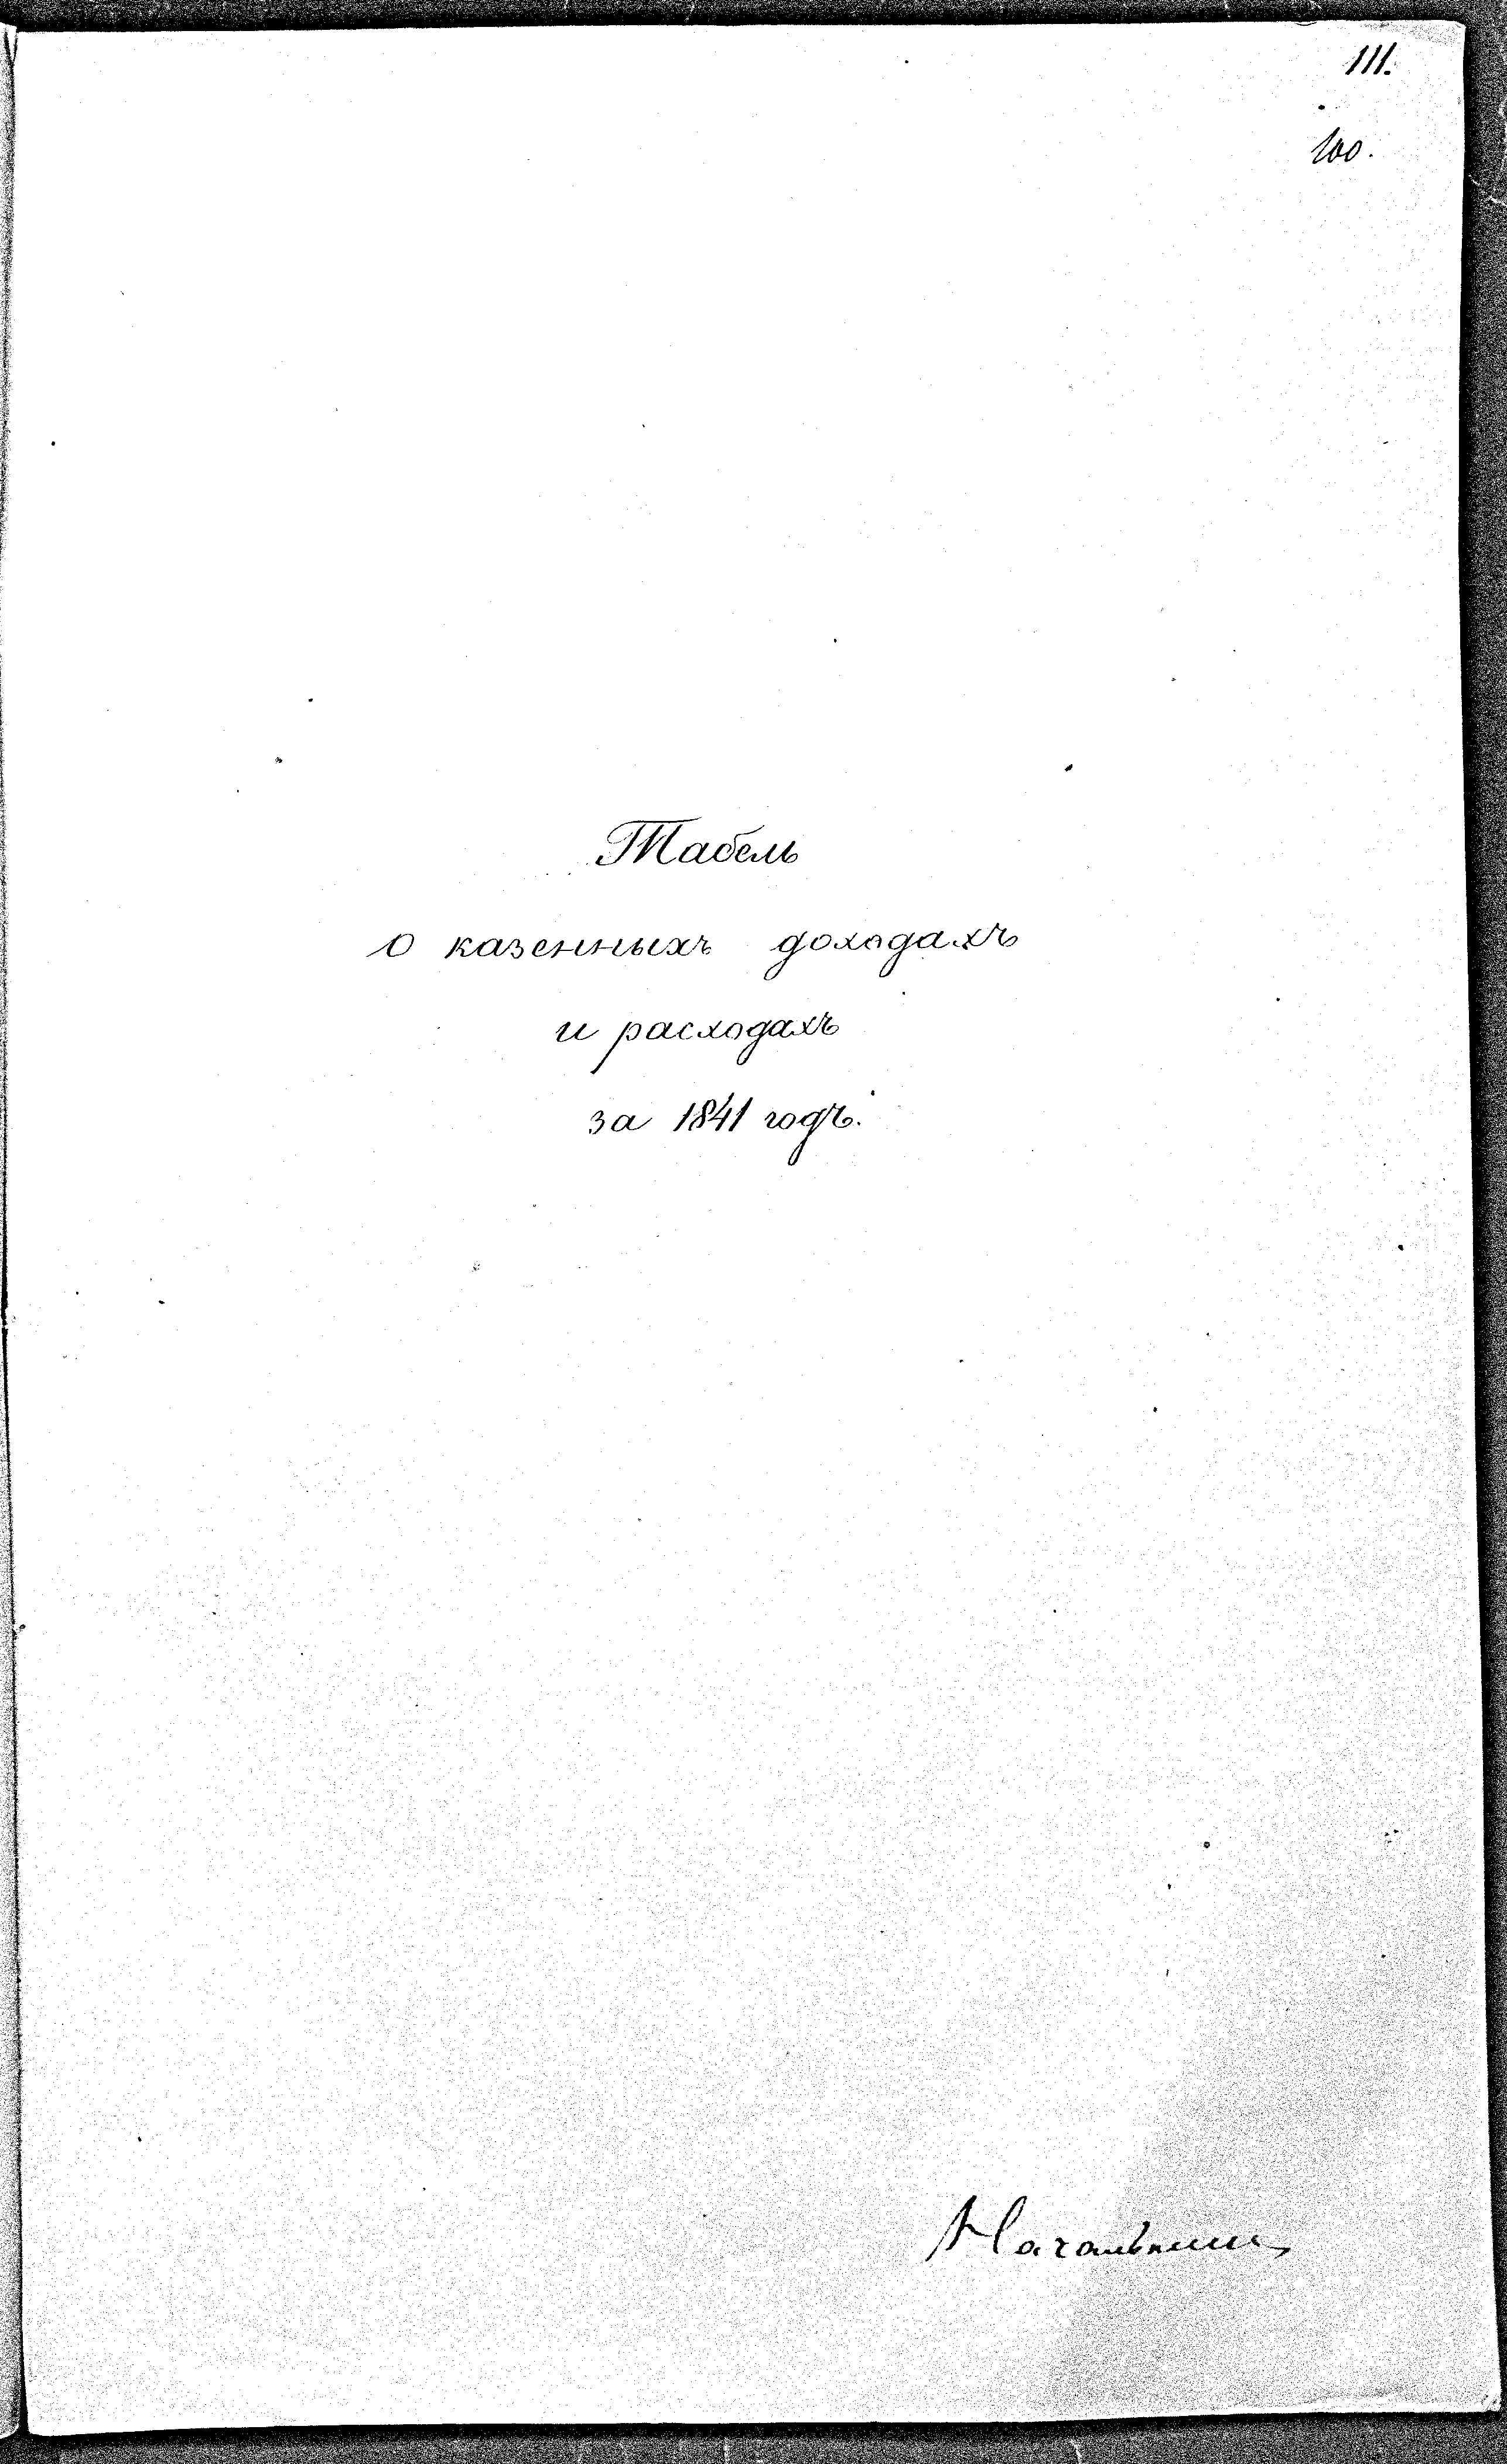 111.
100.
Табель
о казенныхъ доходахъ
и расходахъ
за 1841 годъ.